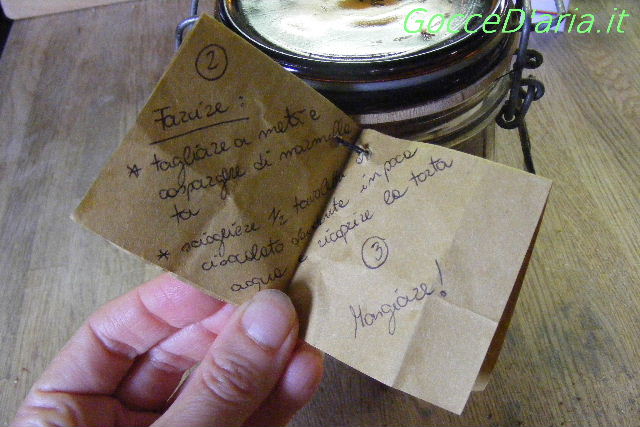 GocceD'aria.it
2
Farcire:
* tagliare a metà e
cospargere di marmella
ta
* sciogliere 1/2 tavoletta di
cioccolato fondente in poca
acqua e ricoprire la torta
3
Mangiare!